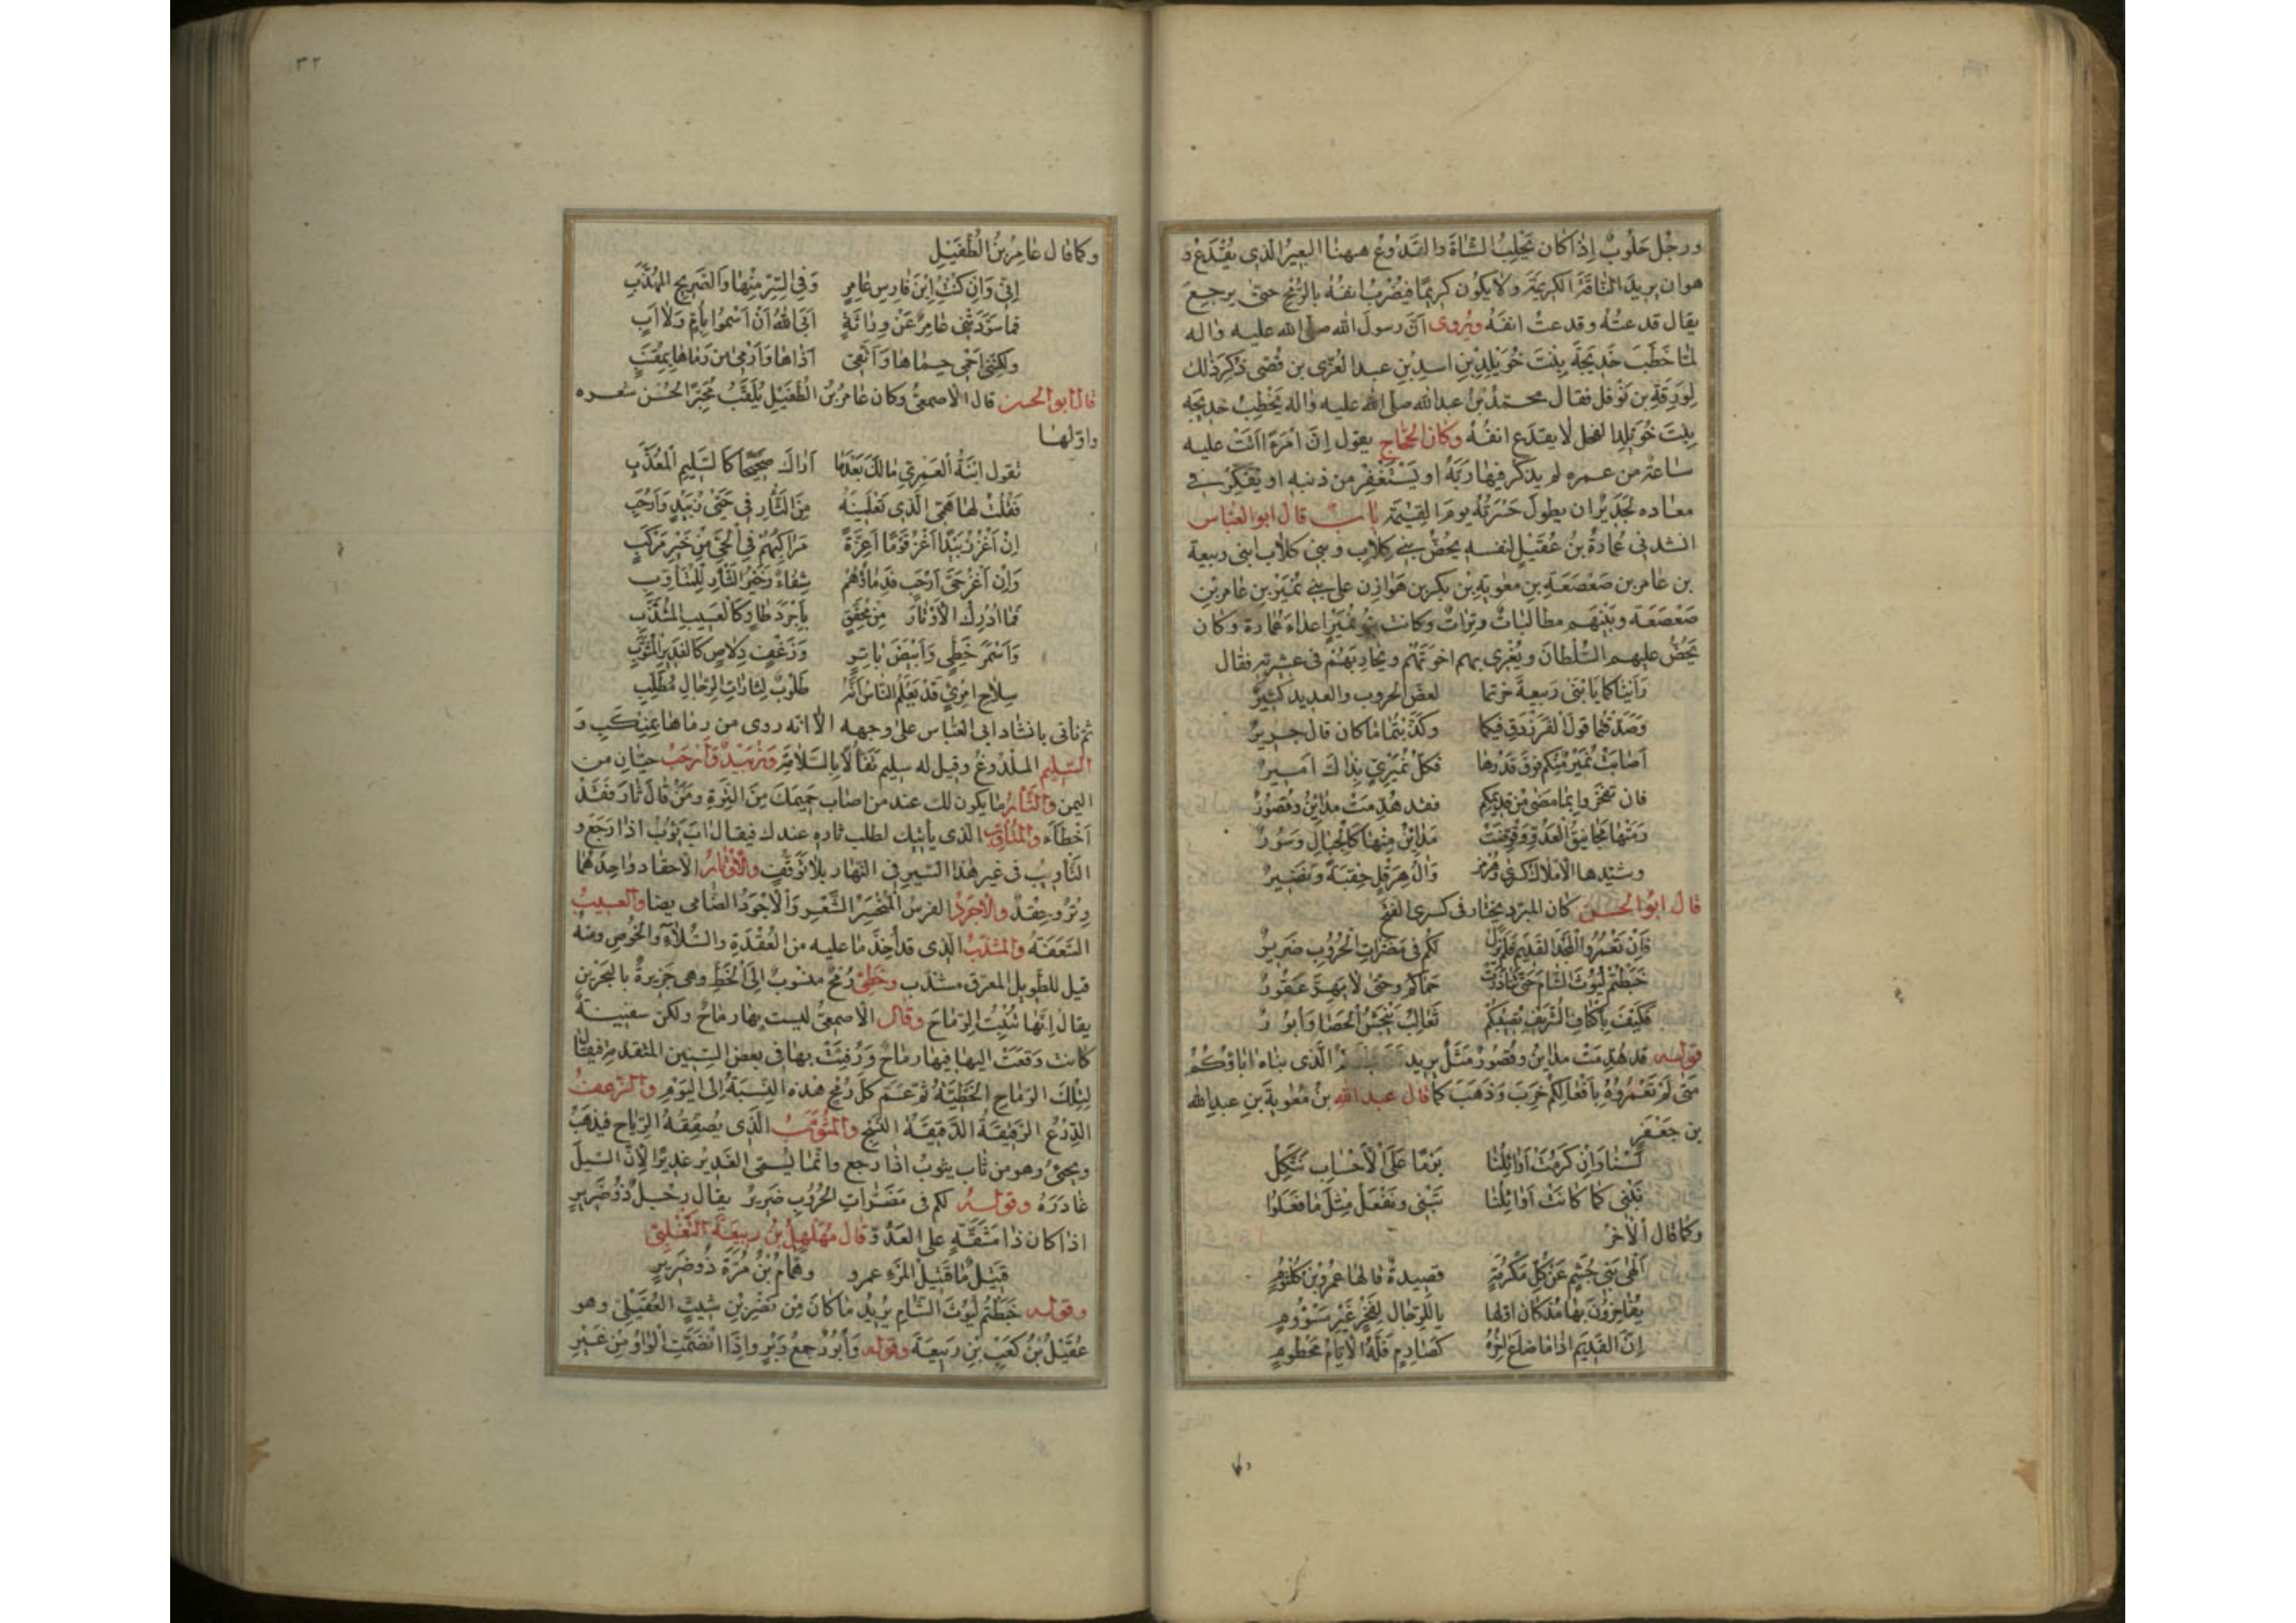 ورجُل حَلُوبٌ إذا كان يَحْلِبُ الشاةَ والقَدُوعُ ههنا البعيرُ الّذى يُقْدَعُ و
هوان يريدَ النّاقةَ الكريمَةَ ولا يكون كريمًا فيُضرَبُ انفُهُ بالرُّمْحِ حتى يرجعَ
يقال قدعتُهُ وقدعتُ انفَهُ ويُروى اَنّ رسولَ الله صلى الله عليه واله
لمّا خَطَبَ خَديجَةَ بِنْتَ خُوَيلِدِ بْنِ اسدِ بْنِ عبدالعُزّى بن قُصَى ذكِرَ ذلك
لِوَرَقَةِ بن نَوْفل فقال محمّدُ بْنُ عبدالله صلى الله عليه واله يَخْطِبُ خديجه
بِنْتَ خُوَيْلِدٍ الفحل لا يقدَع انفُهُ وكان الحَجّاج يقول اِنَّ امْرَءًا اَتَتْ عليه
ساعة من عمره لم يذكر فيها ربَّهُ او يَسْتَغفِرْ من ذنبه او يُفَكِّرْ فى
معاده لجَديرٌ ان يطولَ حَسْرَتُهُ يومَ القِيٰمَةِ باب قال ابو العبّاس
انشدنى عُمارةُ بنُ عُقَيْلٍ لنفسه يحُضُّ بنى كِلابٍ وبنى كلاب ابنى ربيعة
بن عامر بن صَعْصَعَةَ بنِ معٰويةَ بن بكر بن هَوازِن على بنى نُمَيْرِ بنِ عامر بنِ
صَعْصَعَة وبَيْنَهم مطالباتٌ وتِراتٌ وكانت بنو نُمَيْرٍ اعداءَ عُمارة وكان
يَحُضُّ عليهم السُّلطانَ ويُغرى بهم اخوتَهُم ويُحاربهم فى عشيرته فقال
رَاَيْناكما يا بْنَى رَبيعةَ خرتما لعضّ الحروب والعديد كثيرٌ
وَصَدّقتما قولَ الفَرَزْدَقِ فيكما وكذّبتما ما كان قال جريرٌ
اَصابَتْ نُمَيْرٌ مِنْكم فوقَ قدرها فكلّ نُمَيْرىٍّ بذاك اَميرٌ
فان تفخروا بما مضى من قديمكم فقد هُدِمَتْ مدائنٌ وقصُورٌ
رمَتْها مجانيقُ العَدُوّ فقوّضَتْ مَدايِنُ مِنْها كالجبالِ وَسُورٌ
وشيّدها الاملاك كسرى وهرمز وآلُ هِرَقْلٍ حِقبَةً ونَضيرٌ
قال ابو الحسن كان المبرّد يختار فى كسرى الفتح
فاِنْ تَعْمُروا المجْدَ القديمَ فلم يَزَل لكم فى مُضِرّاتِ الحُرُوبِ ضَريرٌ
خَبَطْتُم لُيُوثَ الشّام حَتّى تناذَرَتْ حِماكُم وحتّى لا يَهِرَّ عَقُورٌ
فكيفَ باَكْنافِ الشُّرَيْفِ تُصِيبُكُم ثَعالِبُ يَنْجِشْنَ الحَصا وَ اُبورٌ
قوله قد هُدِمَتْ مداينٌ وقصُورٌ مَثَلٌ يريد الّذى بناه اٰباؤكُم
متى لَمْ تَعْمُرُوهُ بِاَفْعالِكُم خَرِبَ وَذَهَبَ كما قال عبدالله بنُ مُعٰويةَ بنِ عبدالله
بن جعفر
لَسْنا وَاِنْ كَرُمَتْ اَوائِلُنا يَوْمًا عَلَى الاَحْسابِ نَتّكِلُ
نَبْنى كما كانَتْ اَوائِلُنا تَبْنى ونَفْعَلُ مِثْلَ ما فَعَلُوا
وكما قال الاٰخرُ
اَلْهى بَنى جُشَمٍ عَنْ كلّ مَكْرُمَةٍ قصيدةٌ قالها عمرو بنُ كُلثُومٍ
يُفاخِرُونَ بها مُذ كان اوّلها يا لَلرّجالِ لِفَخْرٍ غَيْرِ مَسْؤُومٍ
اِنَّ القَديمَ اذا ما ضاعَ اٰخِرُهُ كصارِمٍ فَلَّهُ الاَيّامُ مَحْطُومٍ
٣٢
وكما قال عامِرُ بنُ الطُّفَيْلِ
اِنّى وَاِنْ كنْتُ ابْنَ فارِسِ عامِرٍ وَفِى السِّرِّ مِنْها وَالصَّريحِ المُهَذَّبِ
فما سَوَّدَتْنى عامِرٌ عَنْ وِراثَةٍ اَبَى اللهُ اَنْ اَسْمُو بِاُمٍّ وَلا اَبٍ
ولكِنّنى اَحْمى حِماها وَاَتّقى اَذاها وَاَرْمى مَن رَماها بِمِقْنَبٍ
قال ابو الحسن قال الاصمعىُّ وكان عامرُ بْنُ الطُّفَيْلِ يُلَقَّبُ مُحَبِّرًا لحُسْن شعره
واوّلها
تقول ابْنَةُ العَمْرِىِّ مالَكَ بَعْدَما اَراكَ صَحيحًا كالسَّليمِ المُعَذَّبِ
فَقُلْتُ لها هَمّى الّذى تَعْلَمينَهُ مِنَ الثَّارِ فى حَيَّىْ زُبَيْدٍ وَاَرْحَبِ
اِنْ اَغْزُ زُبَيْدًا اَغْزُ قَوْمًا اَعِزَّةً مَراكِبُهُم فى الحَىِّ من خَيْرِ مَرْكَبٍ
وَاِنْ اَغْزُ حَيَّىْ اَرْحَبٍ فدِماؤُهُم شِفاءٌ وَخَيْرُ الثَّارِ لِلْمُتَاَوِّبِ
فما ادْرَكَ الاَوْتارَ مِنْ مُحَقَّقٍ بِاَجْرَدَ طاوٍ كالعَسِيبِ المُشَذَّبِ
وَاَسْمَرَ خَطِّىٍّ وَاَبْيَضَ باتِرٍ وَزَغْفٍ دِلاصٍ كالغَديرِ المُثَوِّبِ
سِلاحُ امْرِئٍ قَدْ يَعْلَمُ النّاسُ اَنّهُ طَلُوبٌ لِثاراتِ الرِّجالِ مُطَلِّبِ
ثم ناتى بانشاد ابى العبّاس على وجهه الّا انّه روى من رماها بمنكب و
السّليم الملدُوغُ وقيل له سليم تَفَالًا بالسَّلامةِ وَزُبَيْدٌ وَاَرْحَبٌ حيّانِ من
اليمن والثَّارُ ما يكون لك عند من اصاب حَميمَك مِنَ التِّرَةِ ومَنْ قال ثار فقد
اَخْطَاَ والمُتَاَوِّبُ الّذى ياتيك لطلب ثاره عندك فيقال اٰبَ يَؤُوبُ اذا رَجَعَ و
التَّاْوِيبُ فى غير هٰذا السّير فى النّهار بلا تَوَقُّفٍ والاَوْتارُ الاحقاد واحدُها
وِتْرٌ وحِقْدٌ والاَجْرَدُ الفرسُ المُنْحَسِرُ الشَّعْرِ وَالاَجْرَدُ الضّامر ايضا والعسيبُ
السَّعَفَةُ والمُشَذَّبُ الّذى قد اُخِذَ ما عليه من العُقْدَةِ والسُّلّاءِ والخُوصِ ومنه
قيل للطَّويلِ المعرّق مشذّب وخَطّىٌّ رُمْحٌ منسوبٌ اِلَى الخَطِّ وهى جَزيرةٌ بالبَحْرين
يقال اِنّها تُنْبِتُ الرّماحَ وقال الاصمعىُّ ليست بها رماحٌ ولكن سفينةً
كانت وقعَتْ اليها فيها رماحٌ وَرُفِئَتْ بها فى بعض السِّنين المتقدّمة فيقال
لِتِلْكَ الرّماحِ الخَطّيّةُ ثم عَمَّ كلّ رُمْحٍ هٰذه النِّسبَةُ اِلى اليَوْمِ والزّغفُ
الدِّرْعُ الرَّقيقةُ الدَّقيقَةُ النَّسْجِ والمُثَوِّبُ الّذى يُصَفِّقُهُ الرّياحُ فيذهَبُ
ويجئُ وهو من ثاب يثوبُ اذا رجع وانّما يُسَمّى الغديرُ غَديرًا لِاَنَّ السَّيلَ
غادَرَهُ وقوله لكم فى مُضِرّاتِ الحُرُوبِ ضَريرٌ يقال رجُلٌ ذُو ضَريرٍ
اذا كان ذا مَشَقَّةٍ على العَدُوّ قال مُهَلْهِلُ بْنُ ربيعَةَ التَّغْلِبِىُّ
قتيلٌ ما قَتيلُ المَرْءِ عمرو وهمّامُ بْنُ مُرَّةَ ذُو ضَريرٍ
وقوله خَبَطْتُم لُيُوثَ الشّامِ يُريدُ ما كانَ مِن نَصْرِ بْنِ شَبَثٍ العُقَيْلِىِّ وهو
عُقَيْلُ بْنُ كَعْبِ بْنِ رَبِيعَةَ وقوله وَاُبُرٌ جمعُ وَبْرٍ واِذا انْضَمَّتِ الواوُ مِنْ غَيْرِ